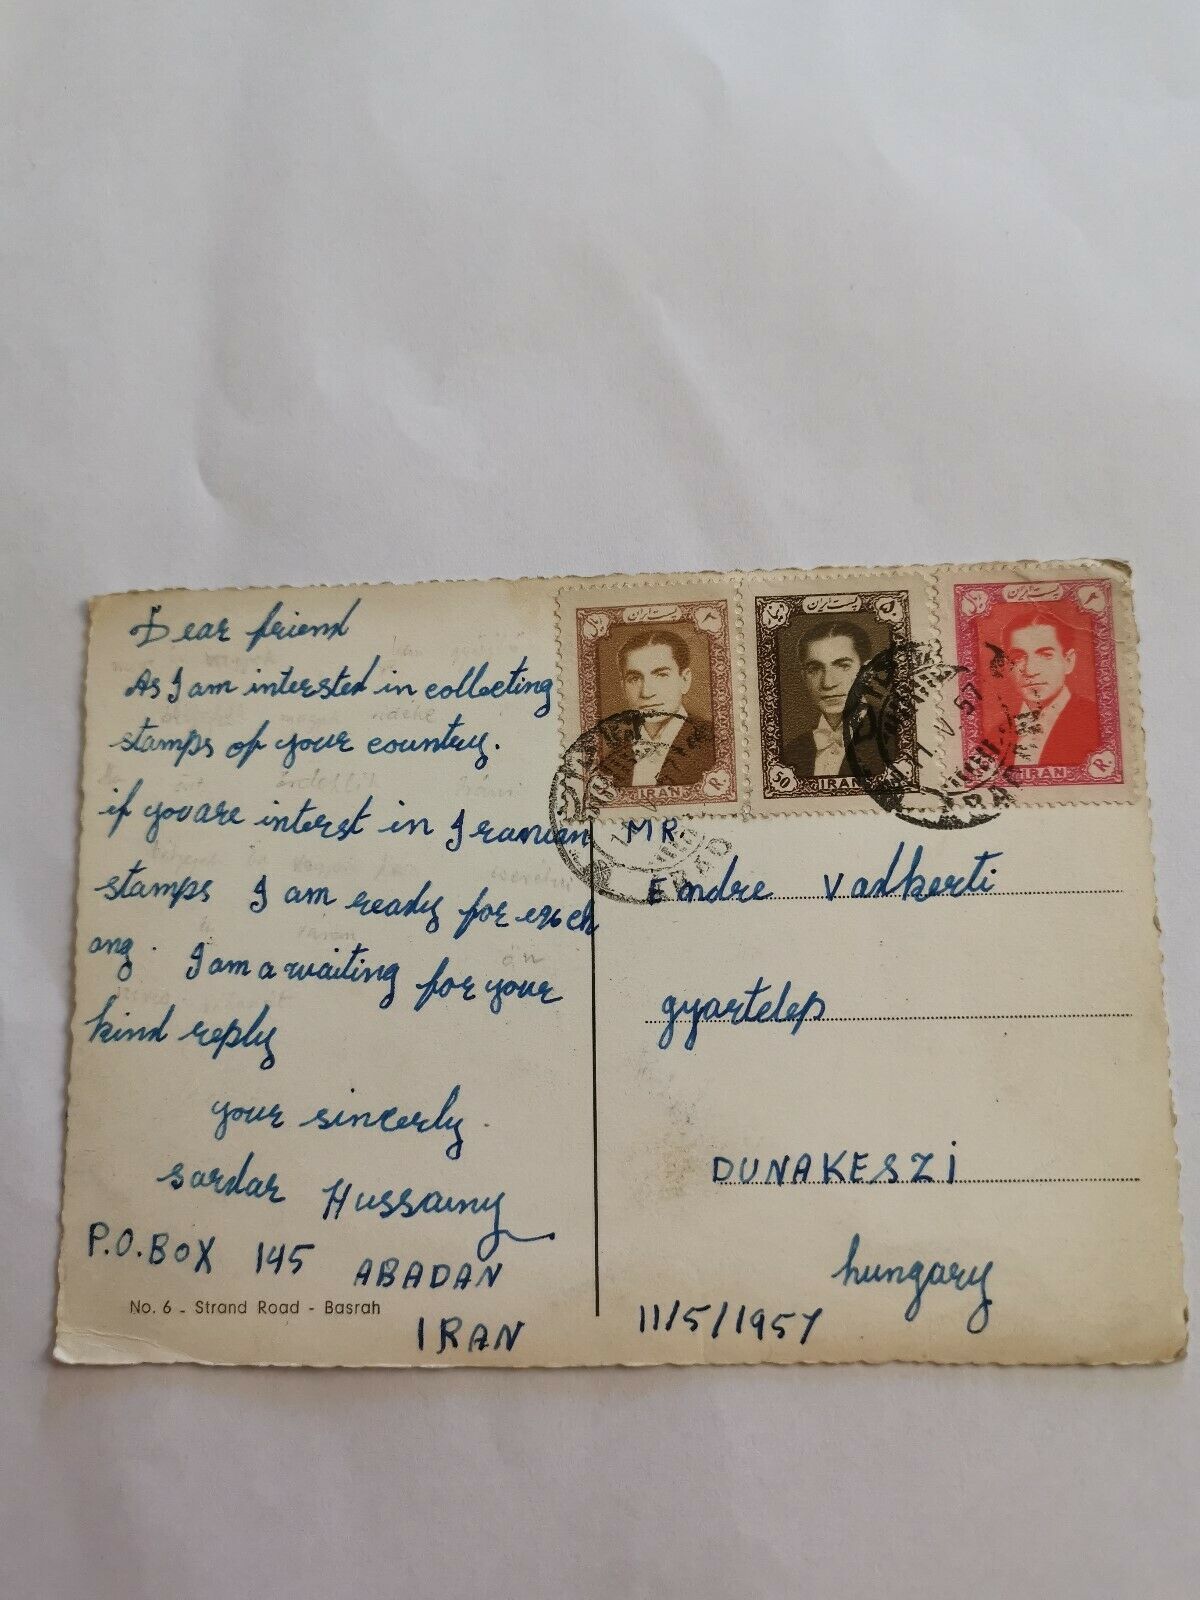 Dear friend
As I am intersted in collecting
stamps of your country.
if you are interst in Iranian
stamps I am ready for exch
ang. I am a waiting for your
kind reply
your sincerly.
sardar Hussainy
P.O.BOX 145 ABADAN
IRAN
No. 6 - Strand Road - Basrah
پست ایران
ریال
R.
IRAN
پست ایران
50
IRAN
پست ایران
ریال
R.
IRAN
V 57
MR.
Endre Vadkerti
gyartelep
DUNAKESZI
hungary
11/5/1957